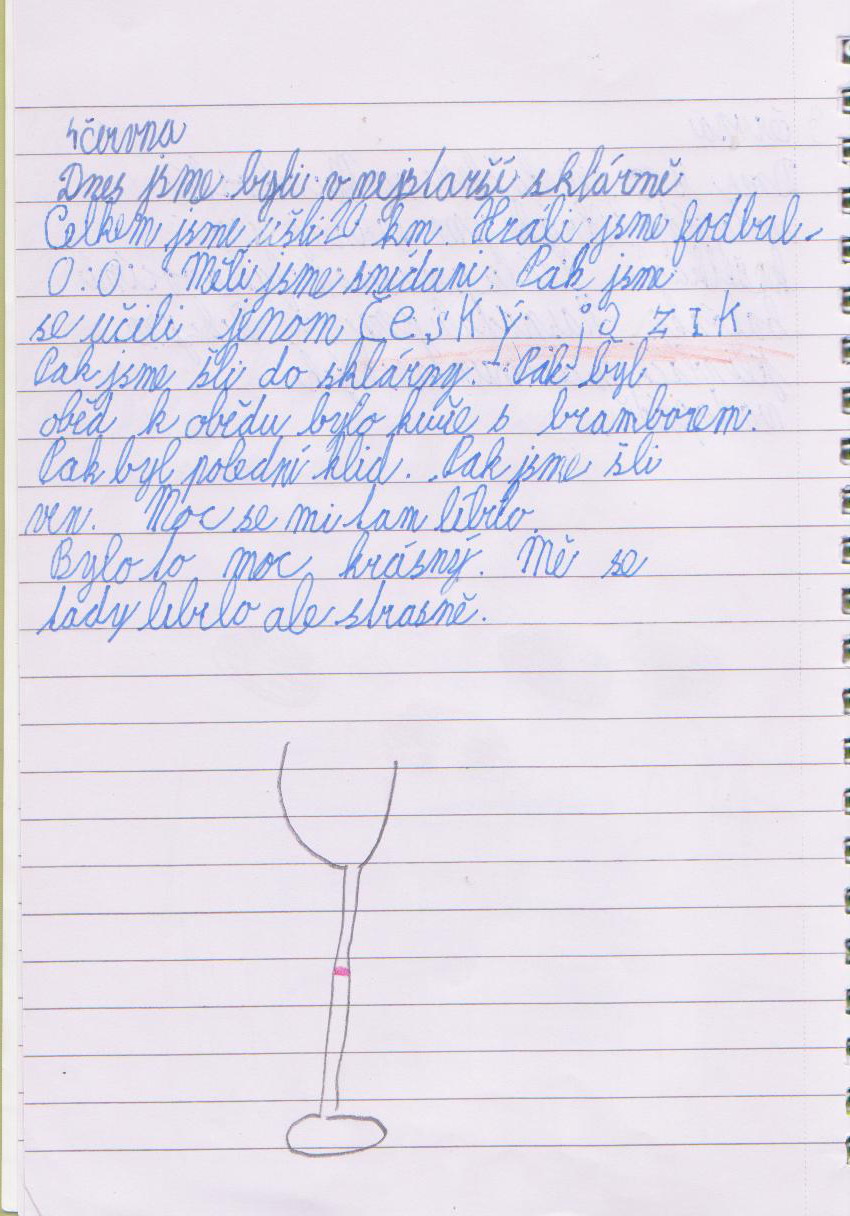 4 června
Dnes jsme byli v nejstarší sklárně
Celkem jsme ušli 20 km. Hráli jsme fodbal-
0:0. Měli jsme snídani. Pak jsme
se učili jenom český jazik
Pak jsme šli do sklárny. Pak byl
oběd k obědu bylo kuře s bramborem.
Pak byl polední klid. Pak jsme šli
ven. Moc se mi tam líbilo.
Bylo to moc krásný. Mě se
tady líbilo ale strasně.